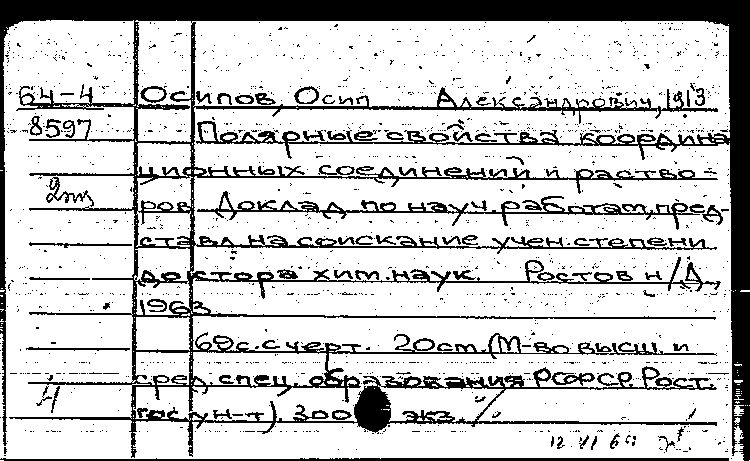 64-4 Осипов, Осип Александрович, 1913
8597 Полярные свойства координа
ционных соединений и раство-
2экз
ров. Доклад по науч. работам, пред-
ставл. на соискание учен. степени
доктора хим. наук. Ростов н/Д.,
1963
60с. с черт. 20см. (М-во высш. и
сред. спец. образования РСФСР. Рост.
гос. ун-т). 300 экз.
4
12 VI 64